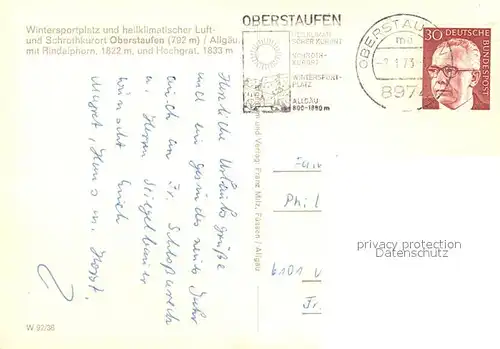 Wintersportplatz und heilklimatischer Luft-
und Schrothkurort Oberstaufen (792 m) / Allgäu,
mit Rindalphorn, 1822 m, und Hochgrat, 1833 m
OBERSTAUFEN
HEILKLIMA-
TISCHER KURORT
SCHROTH-
KURORT
WINTERSPORT-
PLATZ
ALLGÄU
800-1880 m
OBERSTAU
897
30 DEUTSCHE
BUNDESPOST
Herzliche Urlaubsgrüße
und ein gesundes neues Jahr
auch an Fr.
u. Herrn
wünscht Euch
Margret, Hans u. Horst.
und Verlag Franz Milz, Füssen / Allgäu
Fam
Phil
6101
Fr.
privacy protection
Datenschutz
W 92/38